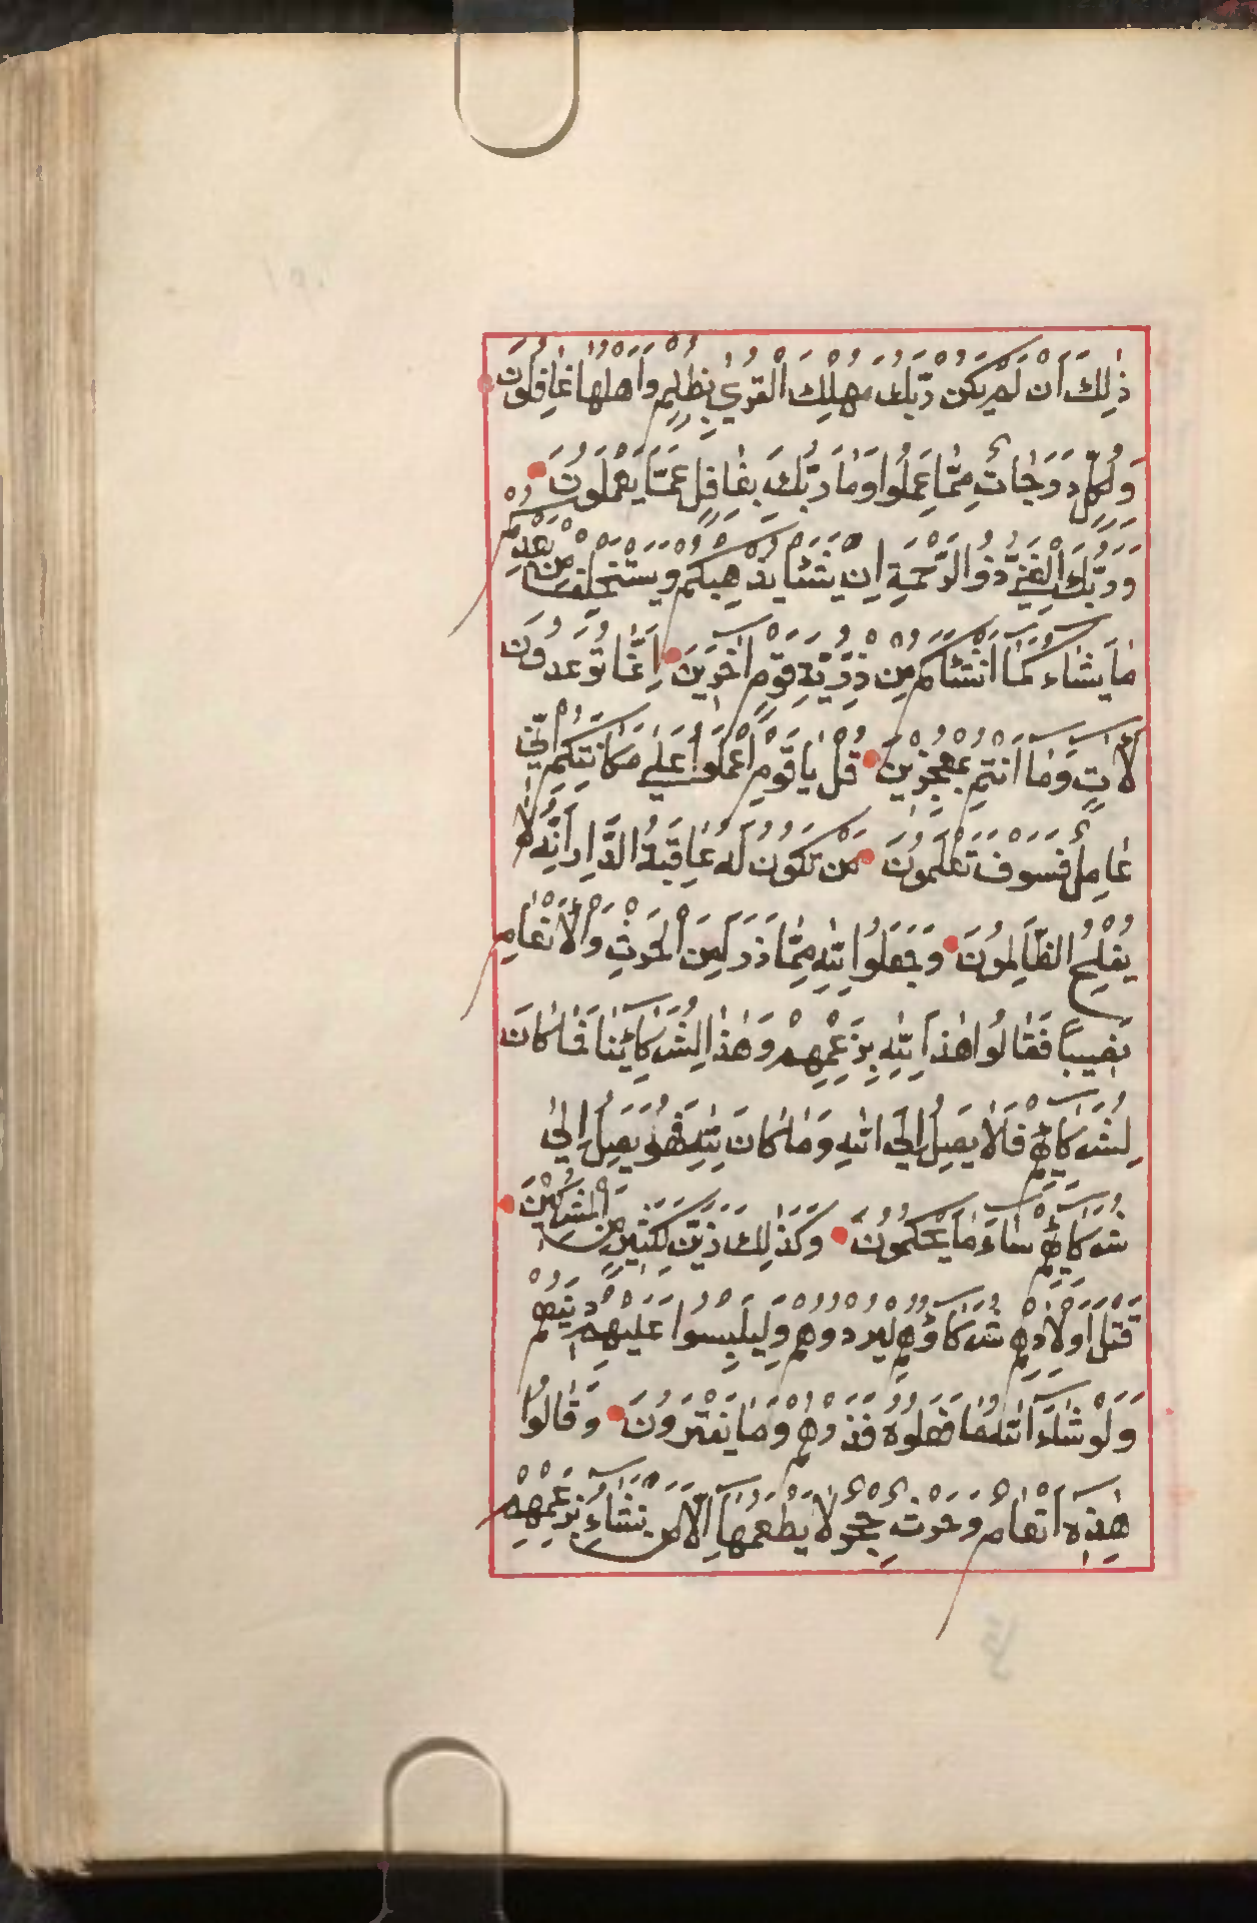 ذٰلِكَ اَنْ لَمْ يَكُنْ رَبُّكَ مُهْلِكَ الْقُرٰى بِظُلْمٍ وَاَهْلُهَا غَافِلُونَ
وَلِكُلٍّ دَرَجَاتٌ مِمَّا عَمِلُوا وَمَا رَبُّكَ بِغَافِلٍ عَمَّا يَعْمَلُونَ
وَرَبُّكَ الْغَنِيُّ ذُو الرَّحْمَةِ اِنْ يَشَأْ يُذْهِبْكُمْ وَيَسْتَخْلِفْ مِنْ بَعْدِكُمْ
مَا يَشَاءُ كَمَا اَنْشَاَكُمْ مِنْ ذُرِّيَّةِ قَوْمٍ اٰخَرِينَ اِنَّمَا تُوعَدُونَ
لَاٰتٍ وَمَا اَنْتُمْ بِمُعْجِزِينَ قُلْ يَا قَوْمِ اعْمَلُوا عَلٰى مَكَانَتِكُمْ اِنِّي
عَامِلٌ فَسَوْفَ تَعْلَمُونَ مَنْ تَكُونُ لَهُ عَاقِبَةُ الدَّارِ اِنَّهُ لَا
يُفْلِحُ الظَّالِمُونَ وَجَعَلُوا لِلّٰهِ مِمَّا ذَرَاَ مِنَ الْحَرْثِ وَالْاَنْعَامِ
نَصِيبًا فَقَالُوا هٰذَا لِلّٰهِ بِزَعْمِهِمْ وَهٰذَا لِشُرَكَائِنَا فَمَا كَانَ
لِشُرَكَائِهِمْ فَلَا يَصِلُ اِلَى اللّٰهِ وَمَا كَانَ لِلّٰهِ فَهُوَ يَصِلُ اِلٰى
شُرَكَائِهِمْ سَاءَ مَا يَحْكُمُونَ وَكَذٰلِكَ زَيَّنَ لِكَثِيرٍ مِنَ الْمُشْرِكِينَ
قَتْلَ اَوْلَادِهِمْ شُرَكَاؤُهُمْ لِيُرْدُوهُمْ وَلِيَلْبِسُوا عَلَيْهِمْ دِينَهُمْ
وَلَوْ شَاءَ اللّٰهُ مَا فَعَلُوهُ فَذَرْهُمْ وَمَا يَفْتَرُونَ وَقَالُوا
هٰذِهِ اَنْعَامٌ وَحَرْثٌ حِجْرٌ لَا يَطْعَمُهَا اِلَّا مَنْ نَشَاءُ بِزَعْمِهِمْ